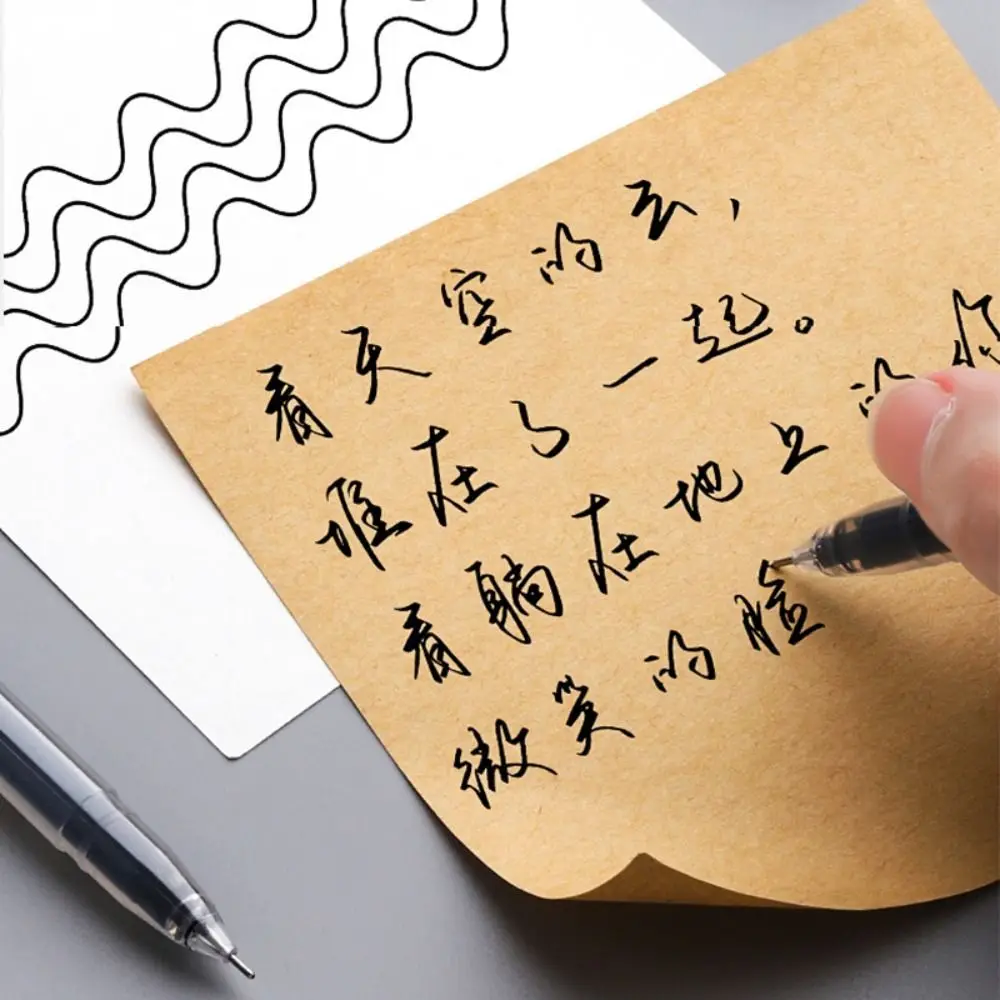 看天空的云,
堆在了一起。
看躺在地上的你
微笑的脸